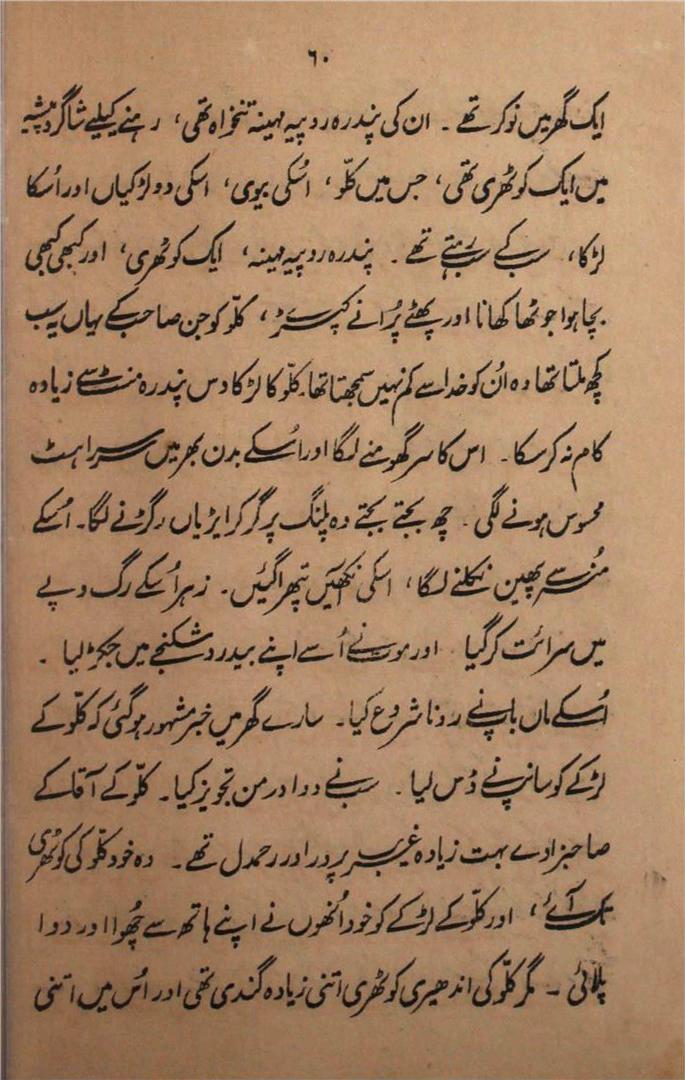 ۶۰
ایک گھر میں نوکر تھے ۔ ان کی پندرہ روپیہ مہینہ تنخواہ تھی، رہنے کیلئے شاگرد پیشہ
میں ایک کوٹھری تھی، جس میں کلّو، اُسکی بیوی، اسکی دو لڑکیاں اور اُسکا
لڑکا، سب کے سب رہتے تھے ۔ پندرہ روپیہ مہینہ، ایک کوٹھری، اور کبھی کبھی
بچا ہوا جوٹھا کھانا اور پھٹے پُرانے کپڑے، کلّو کو جن صاحب کے یہاں یہ سب
کچھ ملتا تھا وہ اُن کو خدا سے کم نہیں سمجھتا تھا۔ کلّو کا لڑکا دس پندرہ منٹ سے زیادہ
کام نہ کر سکا۔ اس کا سر گھومنے لگا اور اُسکے بدن بھر میں سراہٹ
محسوس ہونے لگی ۔ چھ بجتے بجتے وہ پلنگ پر گر کر ایڑیاں رگڑنے لگا۔ اُسکے
مُنہ سے پھین نکلنے لگا، اسکی آنکھیں پتھرا گئیں۔ زہر اُسکے رگ و پے
میں سرائت کر گیا اور موت نے اُسے اپنے بیدرد شکنجے میں جکڑ لیا ۔
اُسکے ماں باپ نے رونا شروع کیا۔ سارے گھر میں خبر مشہور ہو گئی کہ کلّو کے
لڑکے کو سانپ نے ڈس لیا ۔ سب نے دوا درمن تجویز کیا۔ کلّو کے آقا کے
صاحبزادے بہت زیادہ غریب پرور اور رحمدل تھے ۔ وہ خود کلّو کی کوٹھری
تک آئے، اور کلّو کے لڑکے کو خود اُنھوں نے اپنے ہاتھ سے چُھوا اور دوا
پلائی ۔ مگر کلّو کی اندھیری کوٹھری اتنی زیادہ گندی تھی اور اُس میں اتنی